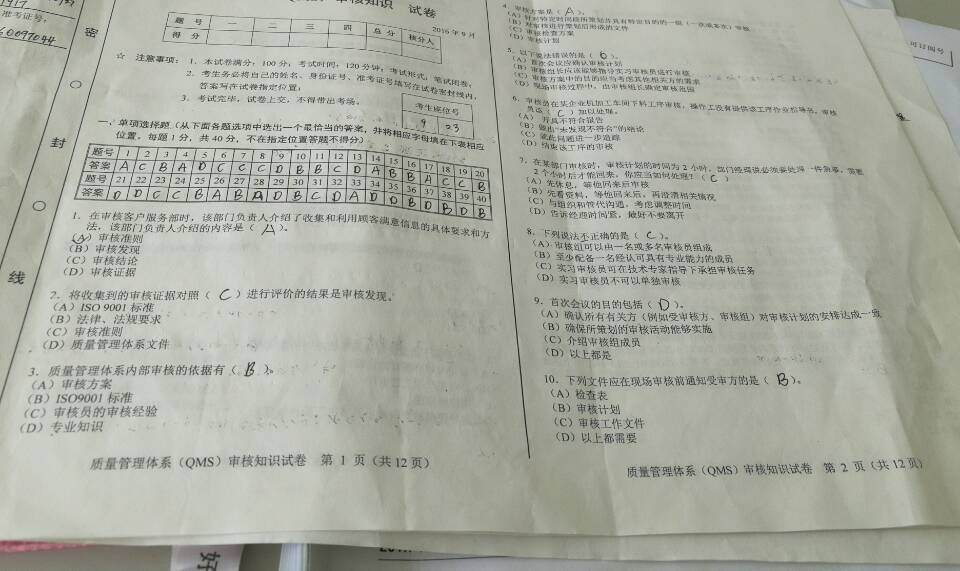 审核知识 试卷
2016年9月
准考证号：
60097044
密
封
线
题 号 一 二 三 四 总分 核分人
得 分
☆ 注意事项：1. 本试卷满分：100分；考试时间：120分钟；考试形式：笔试闭卷；
2. 考生务必将自己的姓名、身份证号、准考证号填写在试卷密封线内，
答案写在试卷指定位置；
3. 考试完毕，试卷上交，不得带出考场。
考生座位号
9 23
一、单项选择题（从下面各题选项中选出一个最恰当的答案，并将相应字母填在下表相应
位置。每题1分，共40分，不在指定位置答题不得分）
题号 1 2 3 4 5 6 7 8 9 10 11 12 13 14 15 16 17 18 19 20
答案 A C B A D C C C D B B C D A B B A C C B
题号 21 22 23 24 25 26 27 28 29 30 31 32 33 34 35 36 37 38 39 40
答案 D D C C B A B D D B C D A D D B D B D B
1. 在审核客户服务部时，该部门负责人介绍了收集和利用顾客满意信息的具体要求和方
法，该部门负责人介绍的内容是（ A ）。
(A）审核准则
(B）审核发现
(C）审核结论
(D）审核证据
2. 将收集到的审核证据对照（ C ）进行评价的结果是审核发现。
(A）ISO 9001 标准
(B）法律、法规要求
(C）审核准则
(D）质量管理体系文件
3. 质量管理体系内部审核的依据有（ B ）。
(A）审核方案
(B）ISO9001 标准
(C）审核员的审核经验
(D）专业知识
质量管理体系（QMS）审核知识试卷 第 1 页（共 12 页）
4. 审核方案是（ A ）。
(A）针对特定时间段所策划并具有特定目的的一组（一次或多次）审核
(B）对审核进行策划后形成的文件
(C）审核检查方案
(D）审核计划
5. 以下说法错误的是（ D ）。
(A）首次会议应确认审核计划
(B）审核组长应该能够指导实习审核员进行审核
(C）审核方案中的目的应当考虑其他相关方的需求
(D）现场审核过程中，由审核组长确定审核范围
6. 审核员在某企业机加工车间下料工序审核，操作工没有提供该工序作业指导书，审核
员应（ C ）加以处理。
(A）开具不符合报告
(B）做出“未发现不符合”的结论
(C）就此问题进一步追踪
(D）结束该工序的审核
7. 在某部门审核时，审核计划的时间为 2 小时，部门经理说必须要处理一件急事，需要
2 个小时后才能回来，你应当如何处理？（ C ）
(A）先休息，等他回来后审核
(B）先看资料，等他回来后，再澄清相关情况
(C）与组织和管代沟通，考虑调整时间
(D）告诉经理时间紧，最好不要离开
8. 下列说法不正确的是（ C ）。
(A）审核组可以由一名或多名审核员组成
(B）至少配备一名经认可具有专业能力的成员
(C）实习审核员可在技术专家指导下承担审核任务
(D）实习审核员不可以单独审核
9. 首次会议的目的包括（ D ）。
(A）确认所有有关方（例如受审核方、审核组）对审核计划的安排达成一致
(B）确保所策划的审核活动能够实施
(C）介绍审核组成员
(D）以上都是
10. 下列文件应在现场审核前通知受审方的是（ B ）。
(A）检查表
(B）审核计划
(C）审核工作文件
(D）以上都需要
质量管理体系（QMS）审核知识试卷 第 2 页（共 12 页）
可订阅号
好